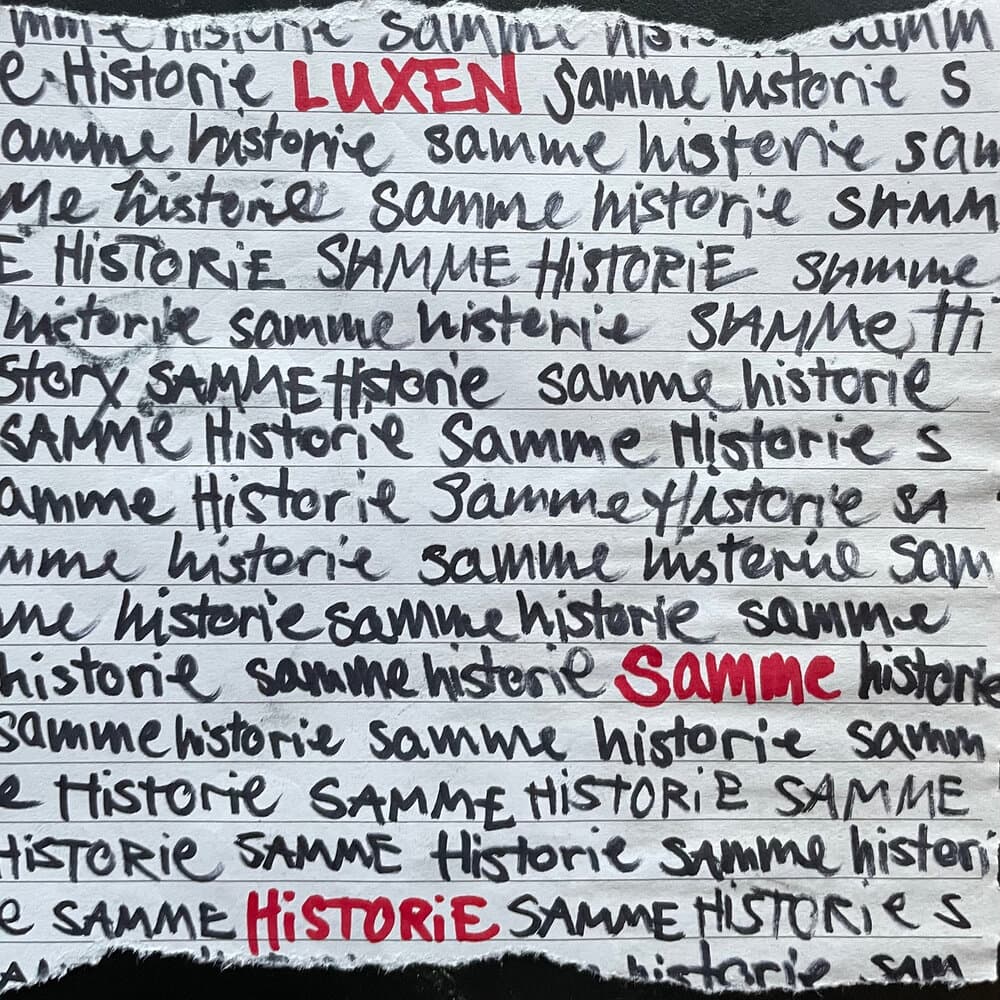 mme historie samme samm
e Historie LUXEN samme historie S
amme historie samme historie sam
me historie samme historie SAMM
E HiSTORiE SAMME HiSTORiE Samme
historie samme historie SAMMe Hi
story SAMME Historie samme historie
SAMMe Historie Samme Historie S
amme Historie Samme Historie SA
mme historie samme historie Sam
me historie samme historie samme
historie samme historie Samme historie
samme historie samme historie samm
e Historie SAMME HiSTORiE SAMME
HiSTORie SAMME Historie samme histori
e SAMME HiSTORiE SAMME HiSTORie S
historie SAM